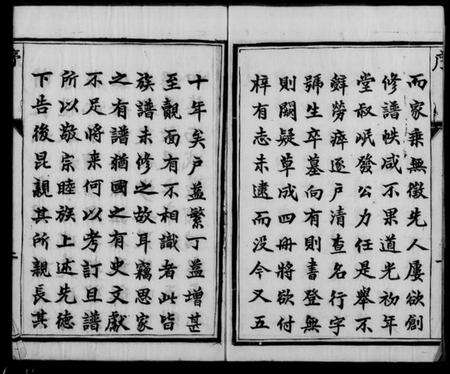 序
而家乘無徵先人屢欲創
修譜帙咸不果道光初年
堂叔岷發公力任是舉不
辭勞瘁逐戶清查名行字
號生卒墓向有則書登無
則闕疑草成四冊將欲付
梓有志未逮而沒今又五
十年矣戶益繁丁益增甚
至覿面有不相識者此皆
族譜未修之故耳竊思家
之有譜猶國之有史文獻
不足將來何以考訂且譜
所以敬宗睦族上述先德
下告後昆親其所親長其